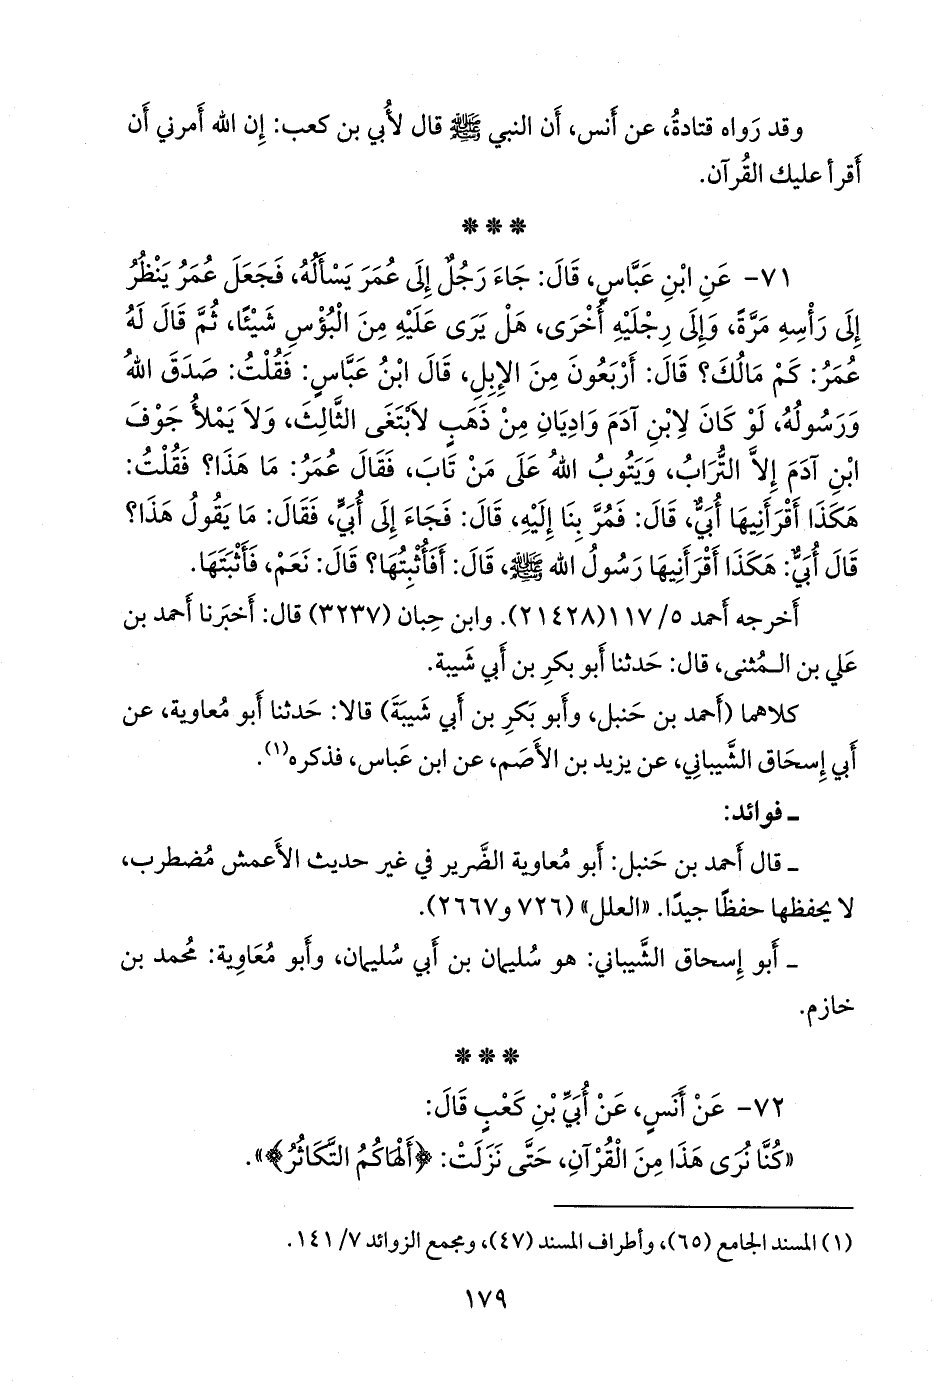 وقد رَواه قتادةُ، عن أَنس، أَن النبي ﷺ قال لأُبي بن كعب: إِن الله أَمرني أَن
أَقرأ عليك القُرآن.
***
٧١- عَنِ ابْنِ عَبَّاسٍ، قَالَ: جَاءَ رَجُلٌ إِلَى عُمَرَ يَسْأَلُهُ، فَجَعَلَ عُمَرُ يَنْظُرُ
إِلَى رَأْسِهِ مَرَّةً، وَإِلَى رِجْلَيْهِ أُخْرَى، هَلْ يَرَى عَلَيْهِ مِنَ الْبُؤْسِ شَيْئًا، ثُمَّ قَالَ لَهُ
عُمَرُ: كَمْ مَالُكَ؟ قَالَ: أَرْبَعُونَ مِنَ الإِبِلِ، قَالَ ابْنُ عَبَّاسٍ: فَقُلْتُ: صَدَقَ اللهُ
وَرَسُولُهُ، لَوْ كَانَ لِابْنِ آدَمَ وَادِيَانِ مِنْ ذَهَبٍ لَابْتَغَى الثَّالِثَ، وَلاَ يَمْلأُ جَوْفَ
ابْنِ آدَمَ إِلاَّ التُّرَابُ، وَيَتُوبُ اللهُ عَلَى مَنْ تَابَ، فَقَالَ عُمَرُ: مَا هَذَا؟ فَقُلْتُ:
هَكَذَا أَقْرَأَنِيهَا أُبَيٌّ، قَالَ: فَمُرَّ بِنَا إِلَيْهِ، قَالَ: فَجَاءَ إِلَى أُبَيٍّ، فَقَالَ: مَا يَقُولُ هَذَا؟
قَالَ أُبَيٌّ: هَكَذَا أَقْرَأَنِيهَا رَسُولُ الله ﷺ، قَالَ: أَفَأُثْبِتُهَا؟ قَالَ: نَعَمْ، فَأَثْبَتَهَا.
أَخرجه أَحمد ٥/ ١١٧(٢١٤٢٨). وابن حِبان (٣٢٣٧) قال: أَخبَرنا أَحمد بن
عَلي بن الـمُثنى، قال: حَدثنا أَبو بكرِ بن أَبي شَيبة.
كلاهما (أَحمد بن حَنبل، وأَبو بَكرِ بن أَبي شَيبَةَ) قالا: حَدثنا أَبو مُعاوية، عن
أَبي إِسحَاق الشَّيباني، عن يزيد بن الأَصَم، عن ابن عَباس، فذكره(١).
ـ فوائد:
ـ قال أَحمد بن حَنبل: أَبو مُعاوية الضَّرير في غير حديث الأَعمش مُضطرب،
لا يحفظها حفظًا جيدًا. «العلل» (٧٢٦ و٢٦٦٧).
ـ أَبو إِسحاق الشَّيباني: هو سُليمان بن أَبي سُليمان، وأَبو مُعَاوِية: مُحمد بن
خازم.
***
٧٢- عَنْ أَنَسٍ، عَنْ أُبَيِّ بْنِ كَعْبٍ قَالَ:
«كُنَّا نُرَى هَذَا مِنَ الْقُرْآنِ، حَتَّى نَزَلَتْ: ﴿أَلْهَاكُمُ التَّكَاثُرُ﴾».
(١) المسند الجامع (٦٥)، وأطراف المسند (٤٧)، ومجمع الزوائد ٧/ ١٤١.
١٧٩